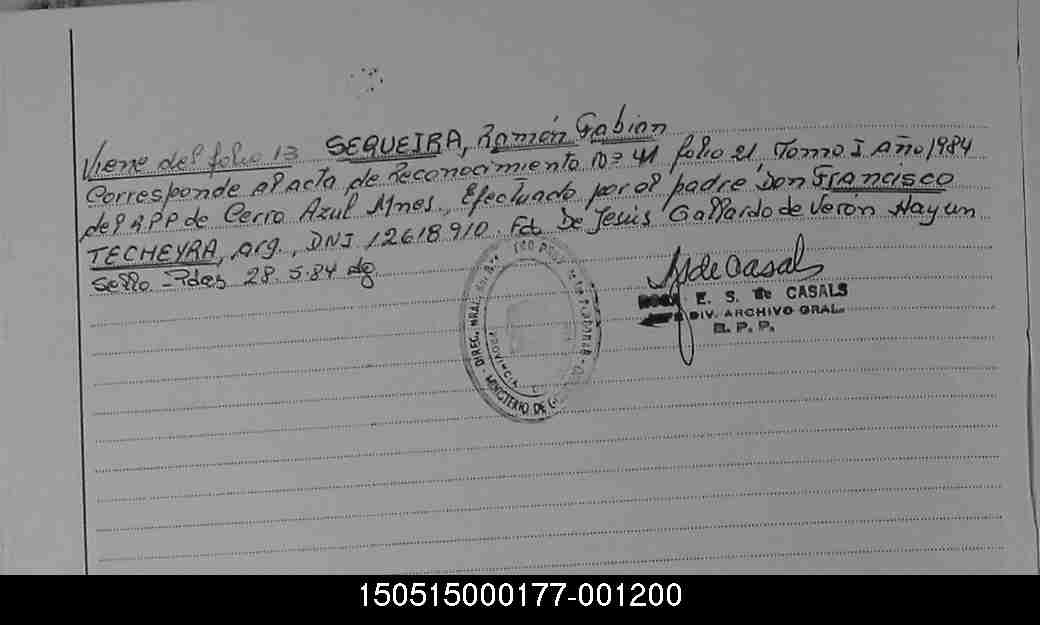 Viene del folio 13 SEQUEIRA, Ramón Fabian
Corresponde al acta de Reconocimiento Nº 41 folio 21 Tomo I Año 1984
del RPP de Cerro Azul Mnes., Efectuado por el padre Don FRANCISCO
TECHEYRA, arg., DNI 12618910. Fdo De Jesús Gallardo de Verón Hay un
sello - Pdas 28.5.84
E. S. de CASALS
DIV. ARCHIVO GRAL.
R. P. P.
DIREC. GRAL.
PROVINCIA
MINISTERIO DE
150515000177-001200